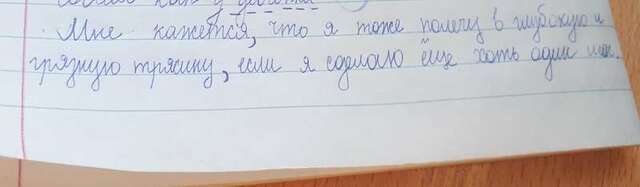 как у
Мне кажется, что я тоже полечу в глубокую и
грязную трясину, если я сделаю ёще хоть один шаг.